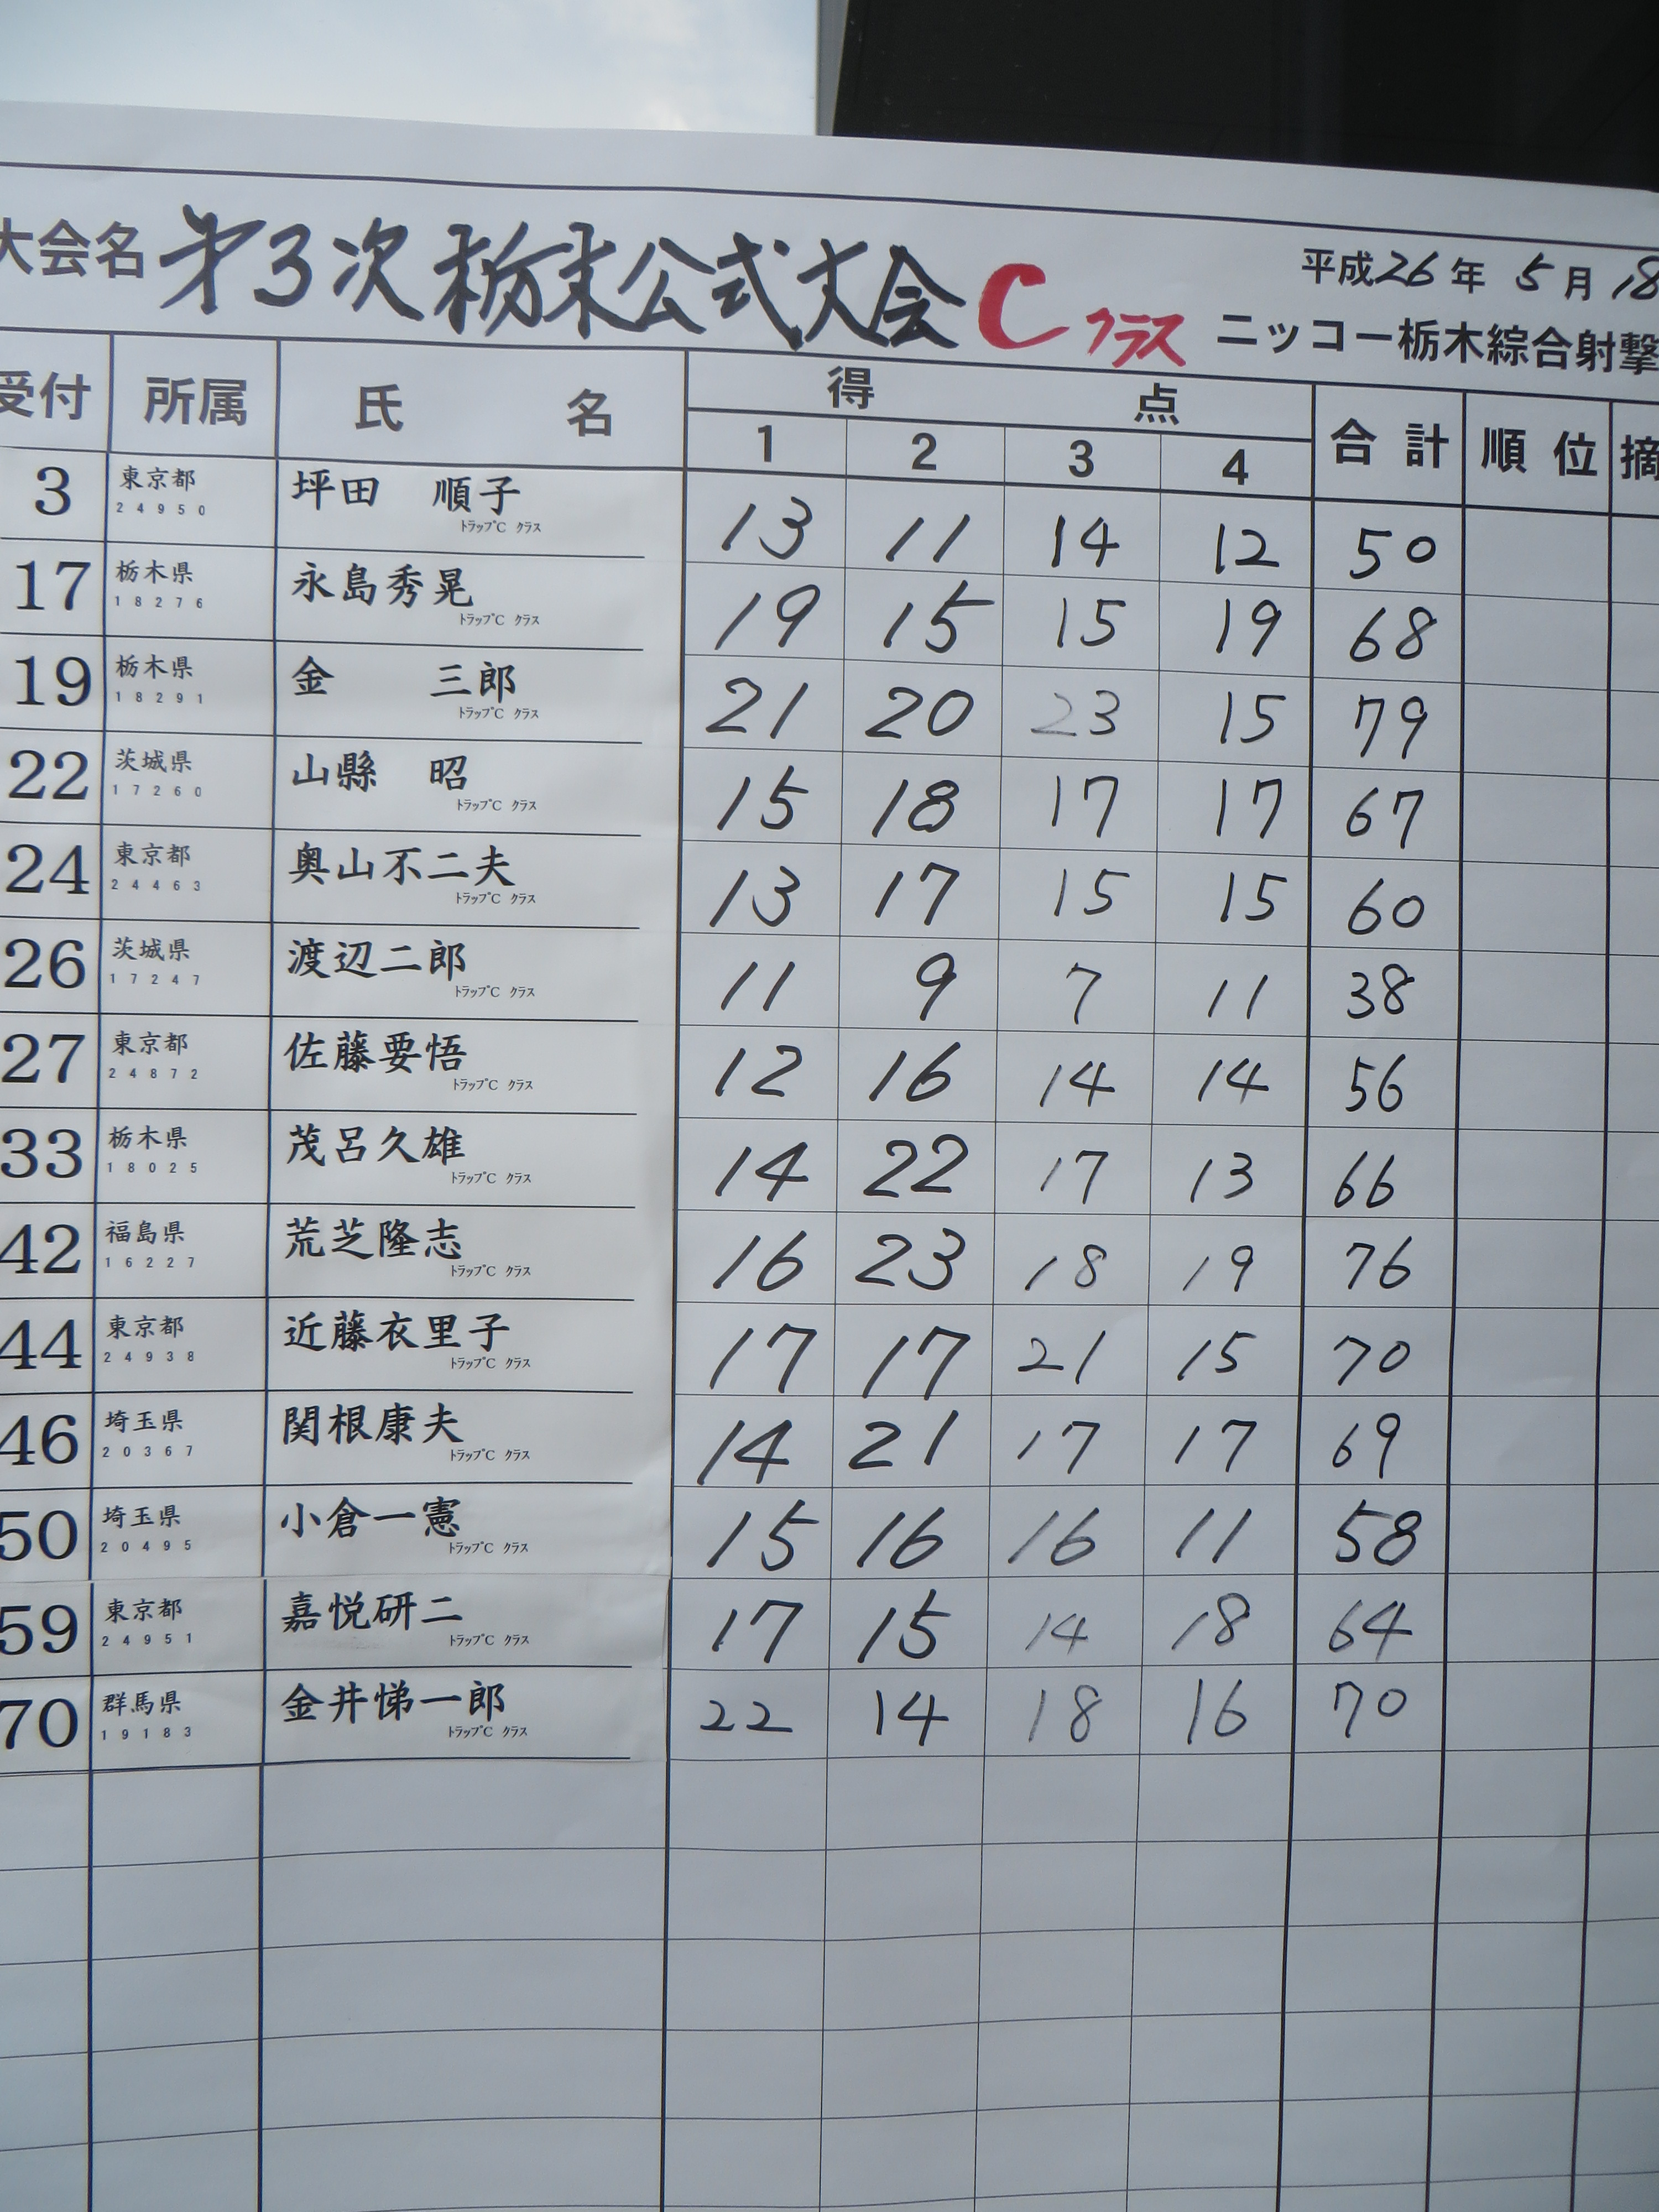 大会名 第3次栃木公式大会 C クラス 平成26年 5月 18
ニッコー栃木綜合射撃
受付 所属 氏名 得点 合計 順位 摘
1 2 3 4
3 東京都 24950 坪田 順子 トラップC クラス 13 11 14 12 50
17 栃木県 18276 永島秀晃 トラップC クラス 19 15 15 19 68
19 栃木県 18291 金 三郎 トラップC クラス 21 20 23 15 79
22 茨城県 17260 山縣 昭 トラップC クラス 15 18 17 17 67
24 東京都 24463 奥山不二夫 トラップC クラス 13 17 15 15 60
26 茨城県 17247 渡辺二郎 トラップC クラス 11 9 7 11 38
27 東京都 24872 佐藤要悟 トラップC クラス 12 16 14 14 56
33 栃木県 18025 茂呂久雄 トラップC クラス 14 22 17 13 66
42 福島県 16227 荒芝隆志 トラップC クラス 16 23 18 19 76
44 東京都 24938 近藤衣里子 トラップC クラス 17 17 21 15 70
46 埼玉県 20367 関根康夫 トラップC クラス 14 21 17 17 69
50 埼玉県 20495 小倉一憲 トラップC クラス 15 16 16 11 58
59 東京都 24951 嘉悦研二 トラップC クラス 17 15 14 18 64
70 群馬県 19183 金井悌一郎 トラップC クラス 22 14 18 16 70